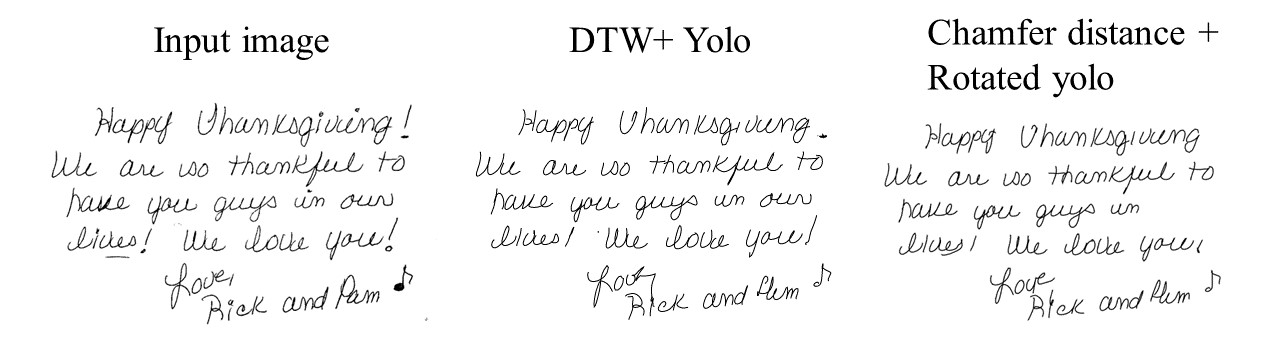 Input image
Happy Thanksgiving!
We are so thankful to
have you guys in our
lives! We love you!
Love,
Rick and Pam
DTW+ Yolo
Happy Thanksgiving.
We are so thankful to
have you guys in our
lives! We love you!
Love,
Rick and Pam
Chamfer distance +
Rotated yolo
Happy Thanksgiving
We are so thankful to
have you guys in
lives! We love you,
Love
Rick and Pam